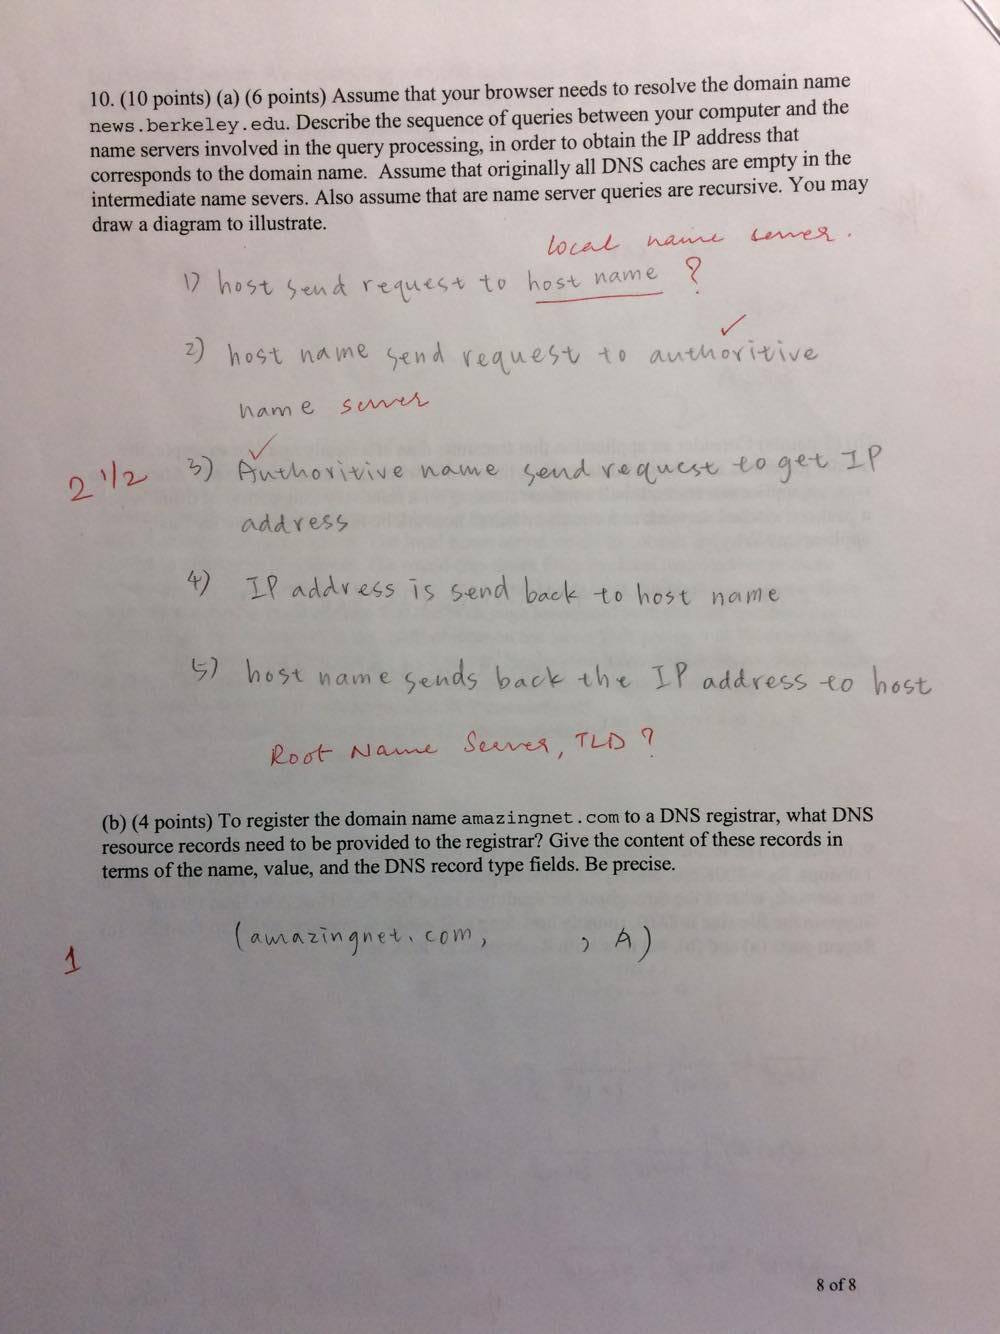 10. (10 points) (a) (6 points) Assume that your browser needs to resolve the domain name
news.berkeley.edu. Describe the sequence of queries between your computer and the
name servers involved in the query processing, in order to obtain the IP address that
corresponds to the domain name. Assume that originally all DNS caches are empty in the
intermediate name severs. Also assume that are name server queries are recursive. You may
draw a diagram to illustrate.
local name server.
1) host send request to host name ?
2) host name send request to authoritive
name server
2 1/2
3) Authoritive name send request to get IP
address
4) IP address is send back to host name
5) host name sends back the IP address to host
Root Name Server, TLD ?
(b) (4 points) To register the domain name amazingnet.com to a DNS registrar, what DNS
resource records need to be provided to the registrar? Give the content of these records in
terms of the name, value, and the DNS record type fields. Be precise.
(amazingnet.com, , A)
1
8 of 8